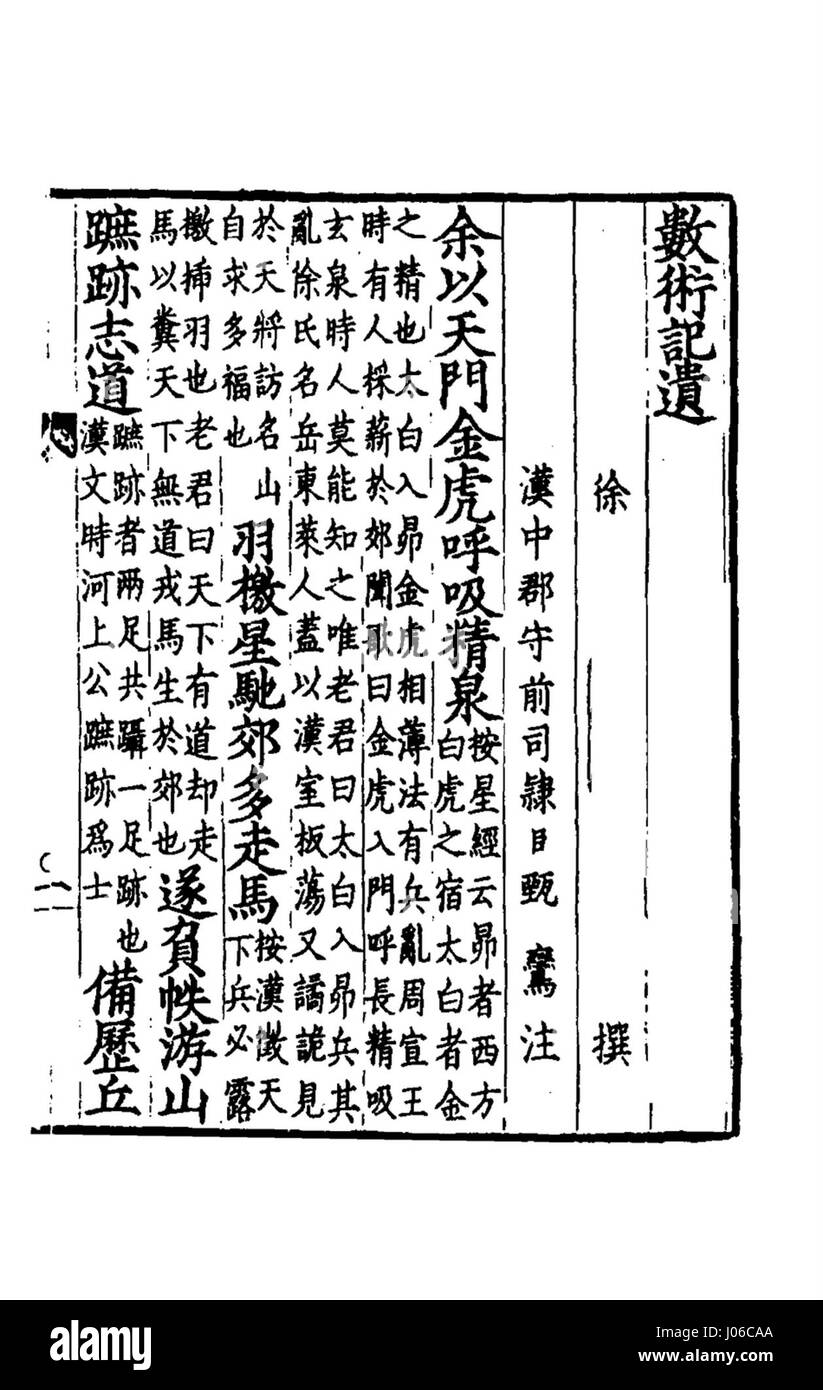 數術記遺
徐 撰
漢中郡守前司隸臣甄鸞注
余以天門金虎呼吸精泉按星經云昴者西方白虎之宿太白者金
之精也太白入昴金虎相薄法有兵亂周宣王時有人採薪於郊聞歌曰金虎入門呼長精吸
玄泉時人莫能知之唯老君曰太白入昴兵其亂徐氏名岳東萊人蓋以漢室板蕩又譎詭見
於天將訪名山自求多福也羽檄星馳郊多走馬按漢徵天下兵必露
檄揷羽也老君曰天下有道却走馬以糞天下無道戎馬生於郊也遂負帙游山
蹠跡志道蹠跡者兩足共躡一足跡也漢文時河上公蹠跡爲士備歷丘
alamy
Image ID: J06CAA
www.alamy.com